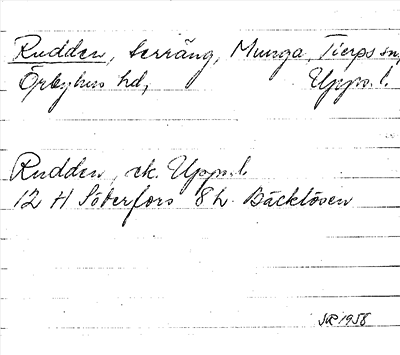 Rudden, terräng, Munga, Tierps sn,
Örbyhus hd, Upps. l.
Rudden, ek. Upps. l.
12 H Söderfors 8 h. Bäcklösen
SR 1958